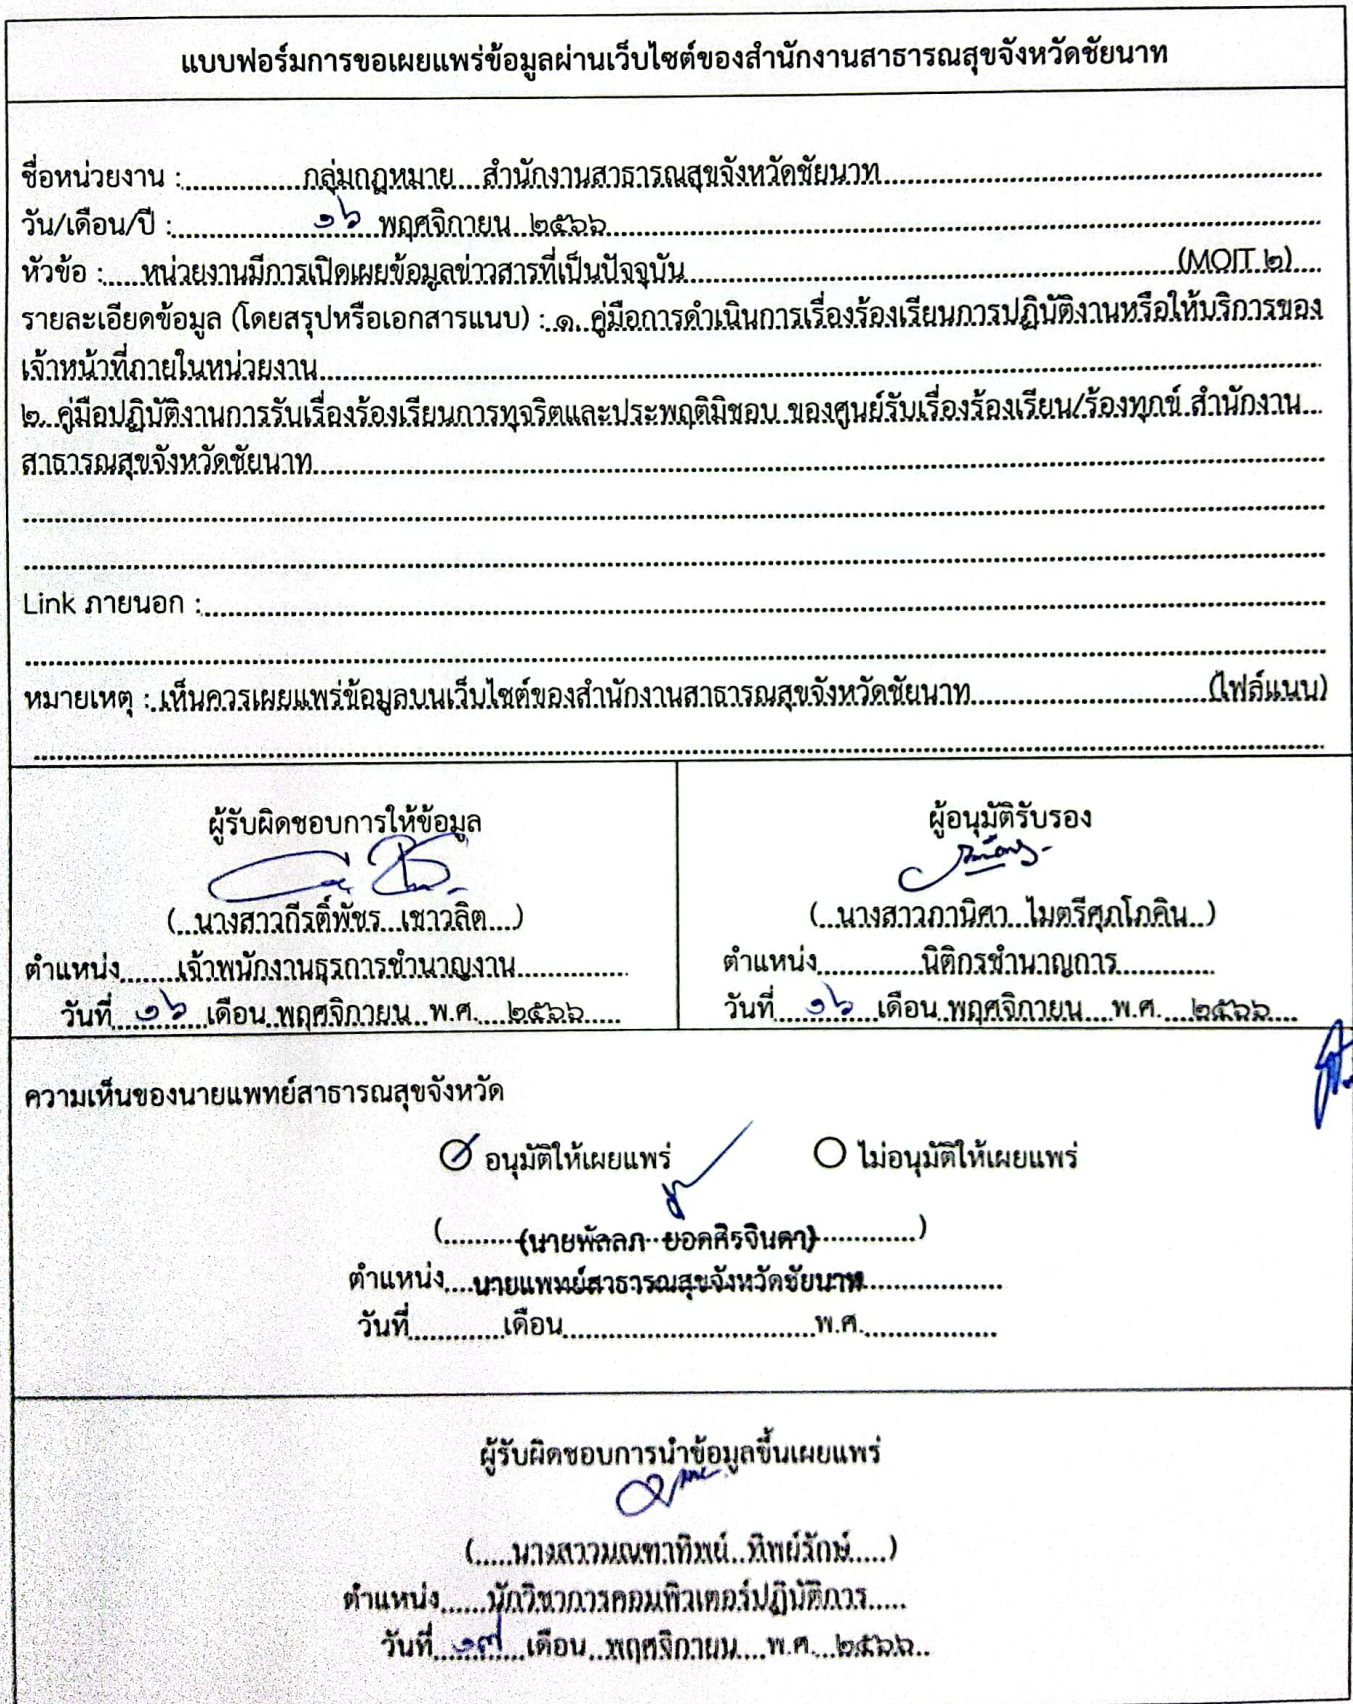 แบบฟอร์มการขอเผยแพร่ข้อมูลผ่านเว็บไซต์ของสำนักงานสาธารณสุขจังหวัดชัยนาท
ชื่อหน่วยงาน :..............กลุ่มกฎหมาย...สำนักงานสาธารณสุขจังหวัดชัยนาท
วัน/เดือน/ปี :..............๑๖ พฤศจิกายน ๒๕๖๖
หัวข้อ :.....หน่วยงานมีการเปิดเผยข้อมูลข่าวสารที่เป็นปัจจุบัน..............(MOIT ๒)....
รายละเอียดข้อมูล (โดยสรุปหรือเอกสารแนบ) : ๑. คู่มือการดำเนินการเรื่องร้องเรียนการปฏิบัติงานหรือให้บริการของ
เจ้าหน้าที่ภายในหน่วยงาน
๒. คู่มือปฏิบัติงานการรับเรื่องร้องเรียนการทุจริตและประพฤติมิชอบ ของศูนย์รับเรื่องร้องเรียน/ร้องทุกข์ สำนักงาน
สาธารณสุขจังหวัดชัยนาท
Link ภายนอก :
หมายเหตุ : เห็นควรเผยแพร่ข้อมูลบนเว็บไซต์ของสำนักงานสาธารณสุขจังหวัดชัยนาท..............(ไฟล์แนบ)
ผู้รับผิดชอบการให้ข้อมูล
(...นางสาวกีรติ์พัชร...เชาวลิต....)
ตำแหน่ง........เจ้าพนักงานธุรการชำนาญงาน
วันที่ ๑๖ เดือน พฤศจิกายน พ.ศ. ๒๕๖๖
ผู้อนุมัติรับรอง
(...นางสาวภานิศา...ไมตรีศุภโภคิน..)
ตำแหน่ง..............นิติกรชำนาญการ
วันที่ ๑๖ เดือน พฤศจิกายน พ.ศ. ๒๕๖๖
ความเห็นของนายแพทย์สาธารณสุขจังหวัด
อนุมัติให้เผยแพร่ ไม่อนุมัติให้เผยแพร่
(นายพัลลภ ยอดศิรจินดา)
ตำแหน่ง....นายแพทย์สาธารณสุขจังหวัดชัยนาท
วันที่.............เดือน..............................พ.ศ..................
ผู้รับผิดชอบการนำข้อมูลขึ้นเผยแพร่
(.....นางสาวมณฑาทิพย์..ทิพย์รักษ์.....)
ตำแหน่ง......นักวิชาการคอมพิวเตอร์ปฏิบัติการ.....
วันที่ ๑๗ เดือน พฤศจิกายน พ.ศ. ๒๕๖๖